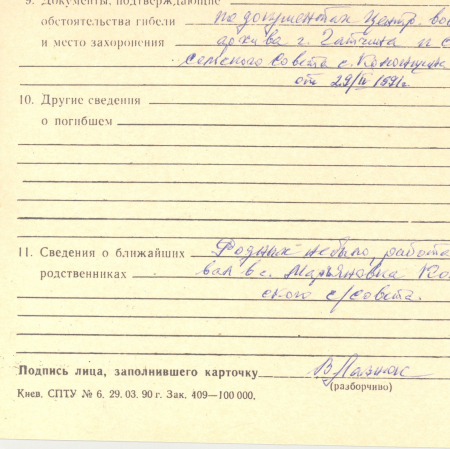 9. Документы, подтверждающие
обстоятельства гибели по документам Центр. во
и место захоронения архива г. Гатчина и с
сельского Совета с.
от 29/IV 1991г.
10. Другие сведения
о погибшем
11. Сведения о ближайших Родных не было, работа
родственниках вал в с. Марьяновка Ко
ского с/совета.
Подпись лица, заполнившего карточку
(разборчиво)
Киев. СПТУ № 6. 29. 03. 90 г. Зак. 409—100 000.